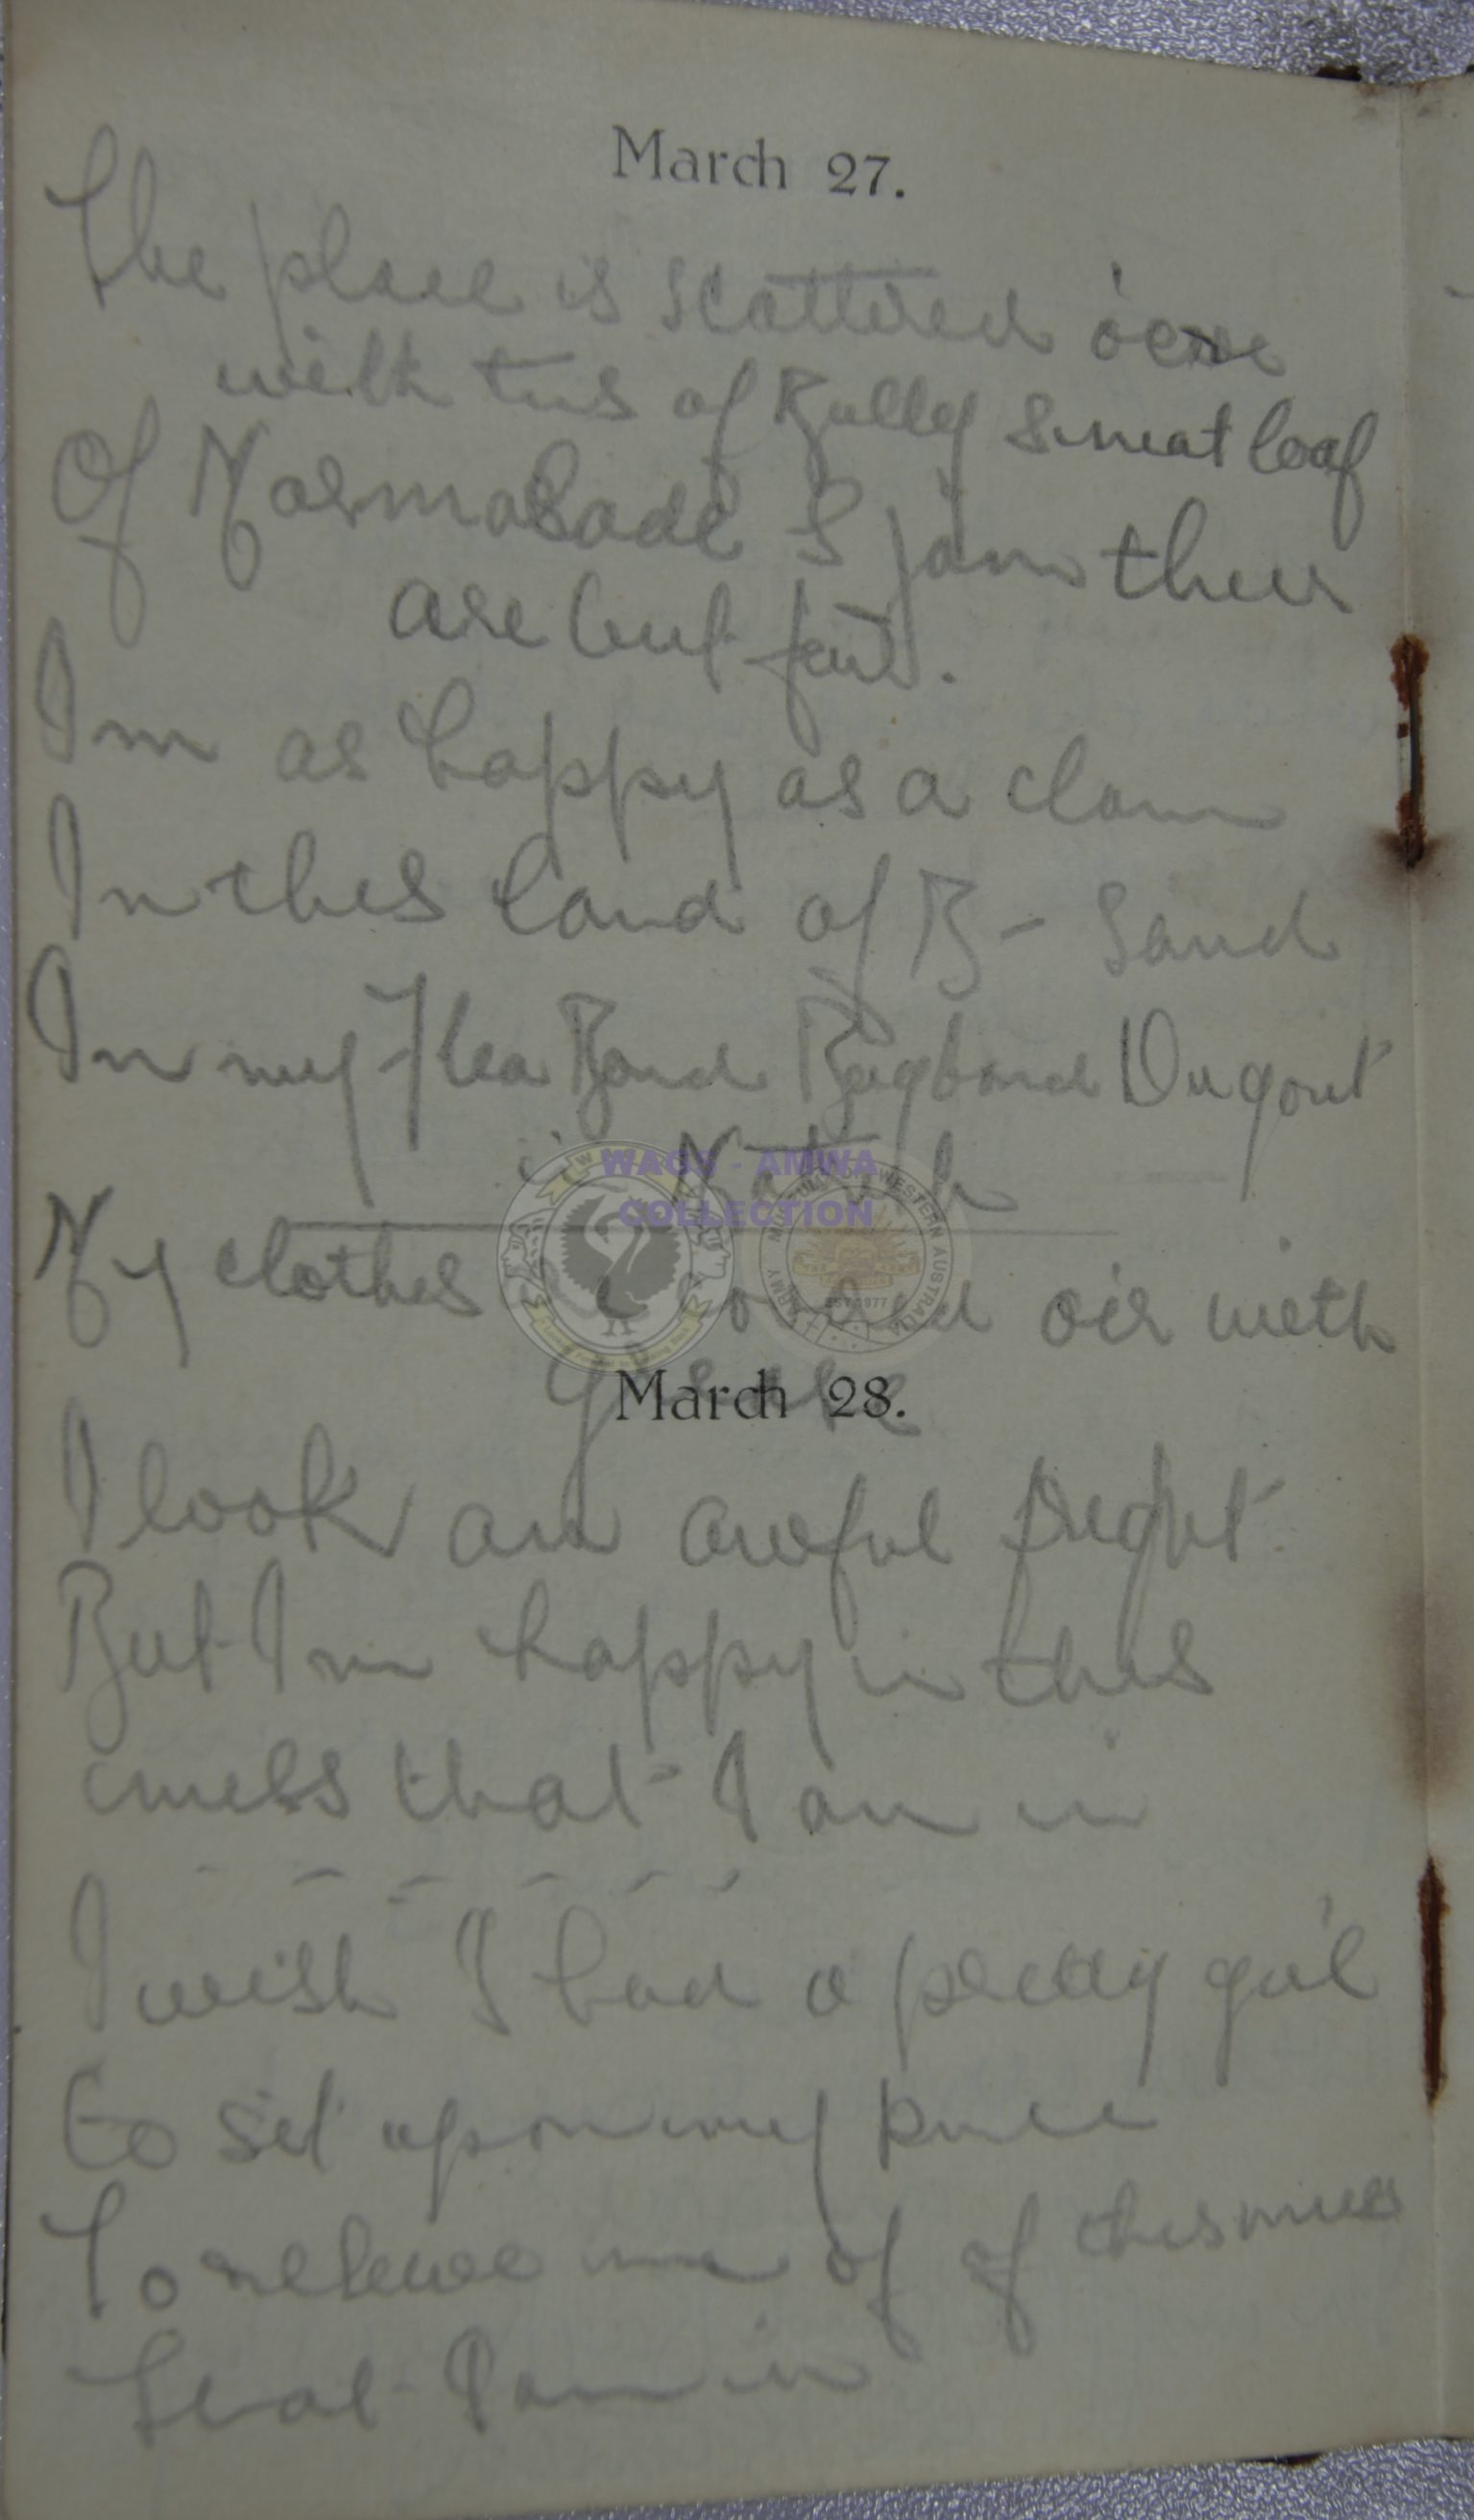 March 27.
The place is scattered o'ere
with tins of Bully & meat loaf
Of Marmalade & jam ther
are but few.
Im as happy as a clam
In this land of B- Sand
In my Flea Bound Bugbound Dugout
in Matruh
My clothes are covered o'er with
grease
March 28.
I look an awful sight
But Im happy in this
mess that I am in
- - - - - -
I wish I had a pretty girl
to sit upon my knee
To releive me of of this mess
that I am in
WAGS - AMWA
COLLECTION
ARMY MUSEUM OF WESTERN AUSTRALIA
EST 1977